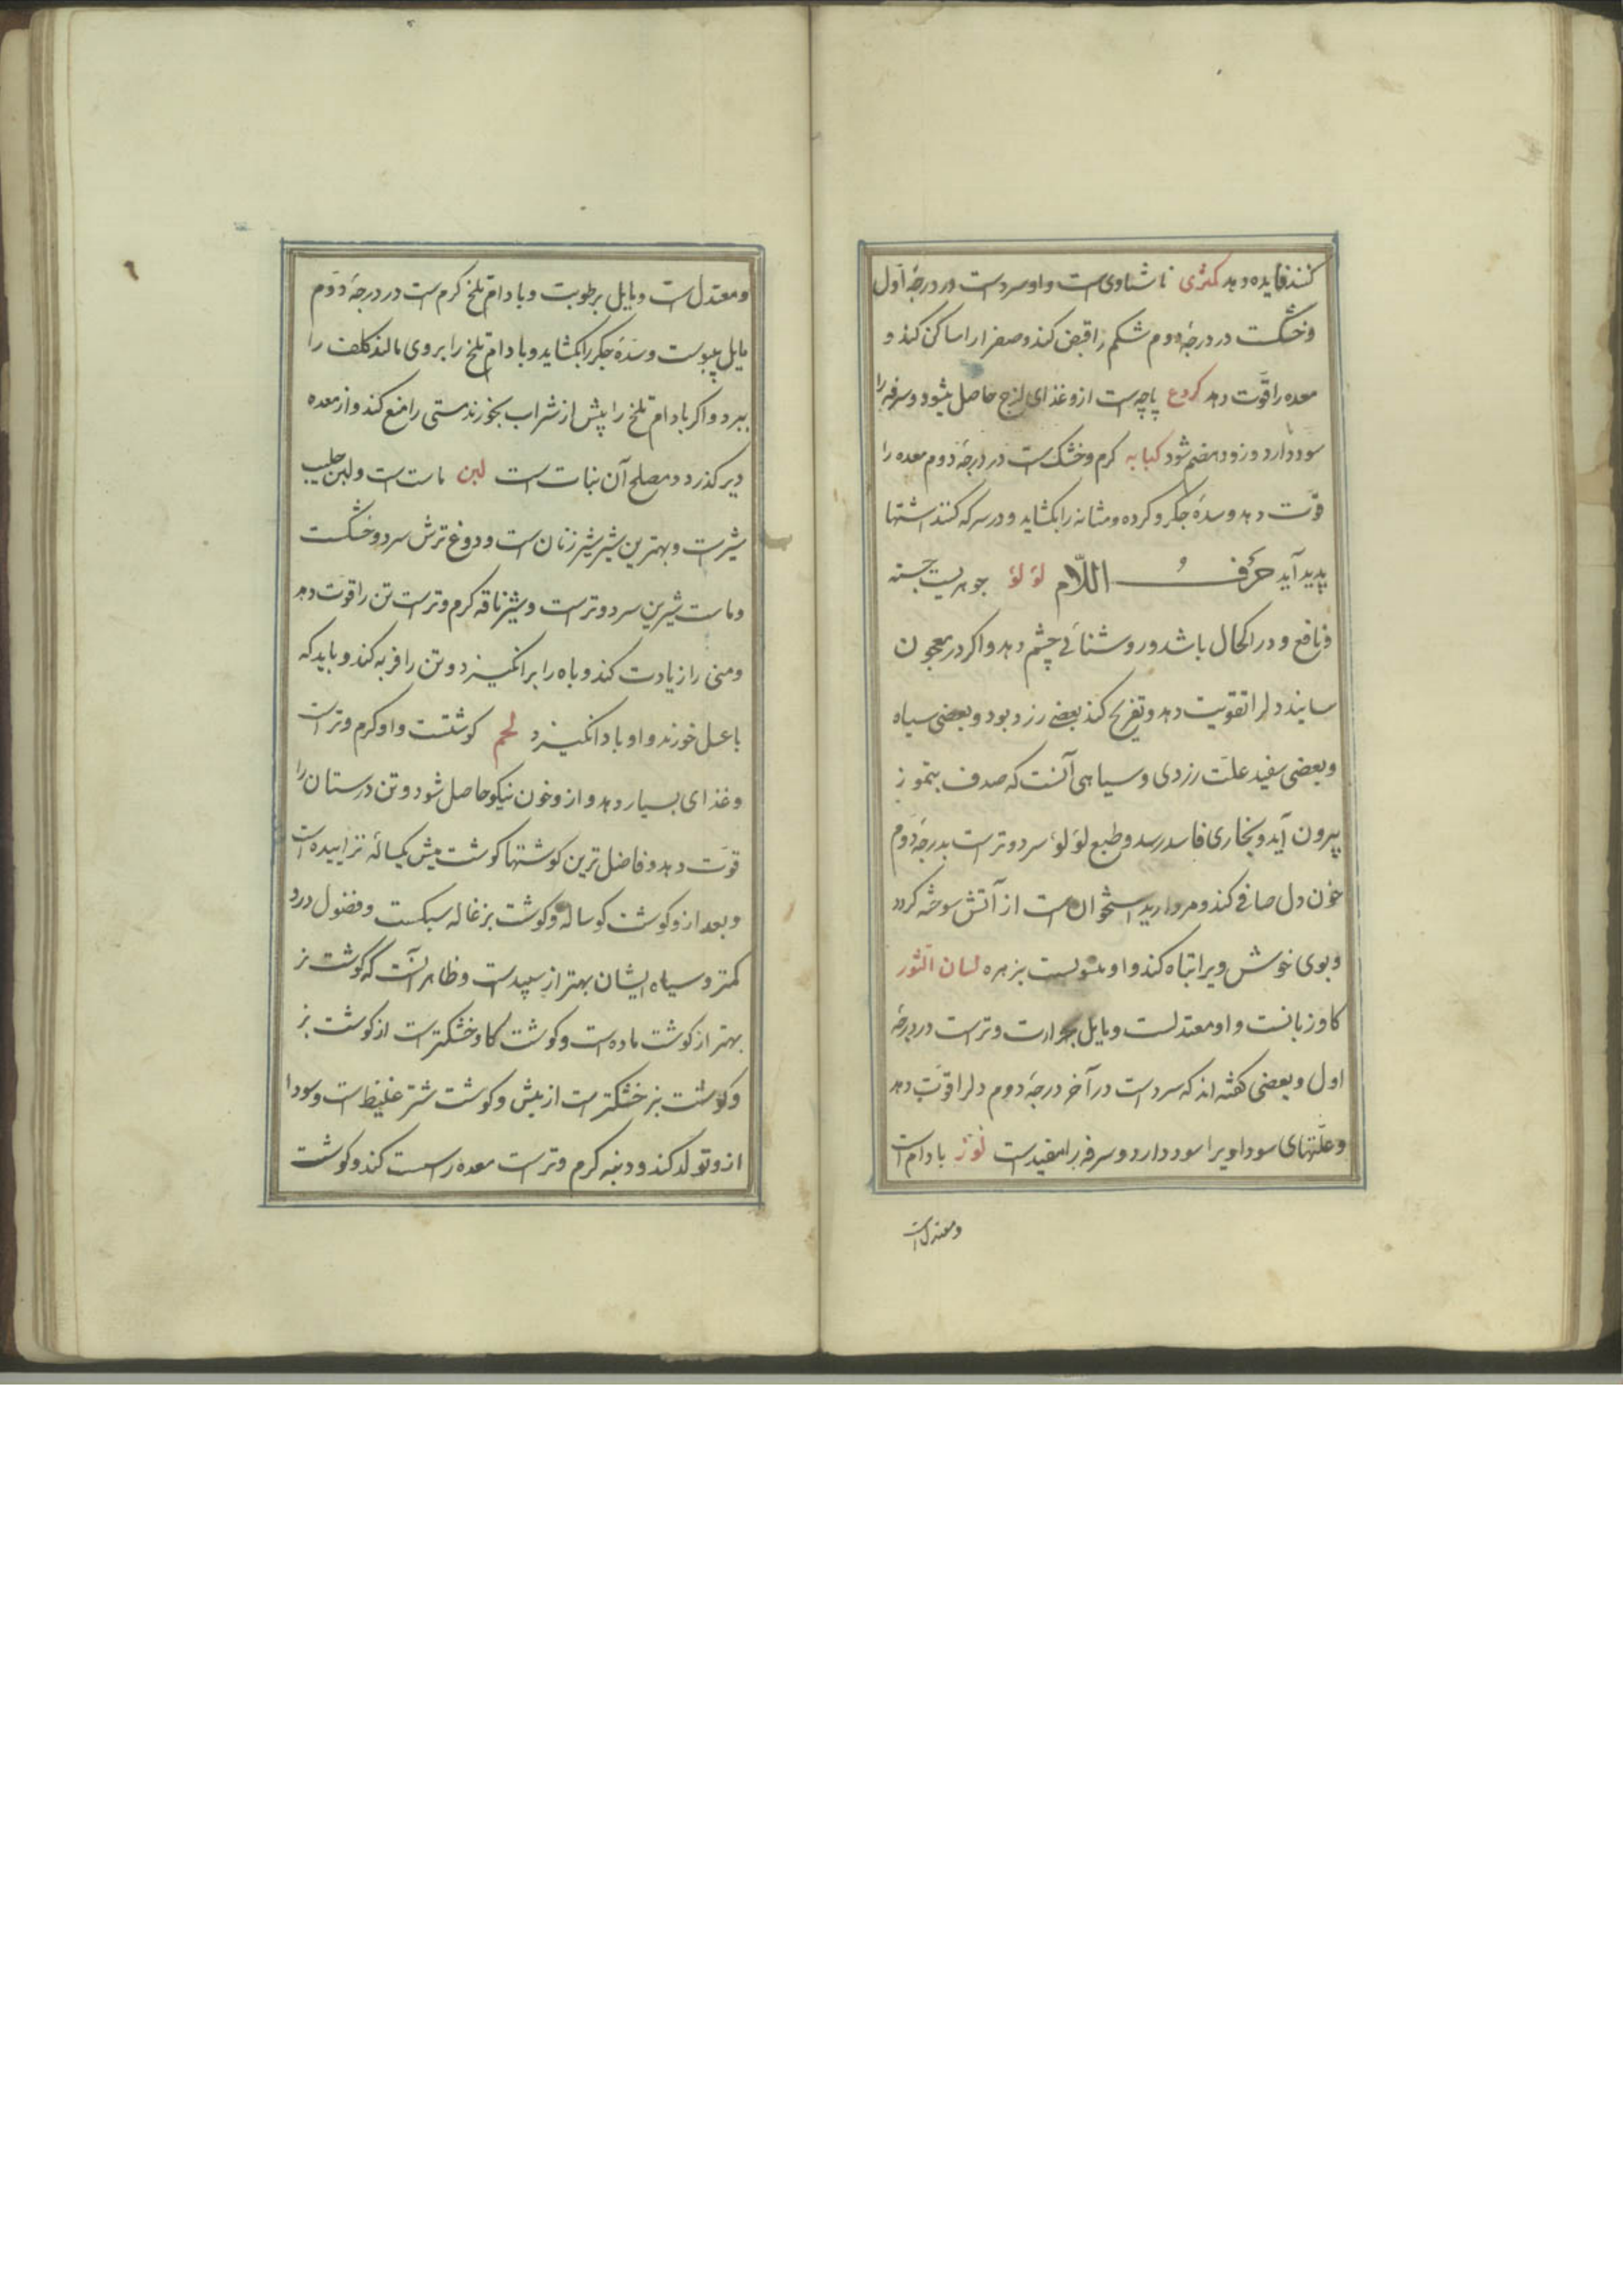 کنند فایده دهد کمثری ناشتاوی است و او سردست در درجهٔ اوّل
و خشکست در درجهٔ دوم شکم را قبض کند و صفرا را ساکن کند و
معده را قوّت دهد کروع پاچه است ازو غذای لزج حاصل میشود و سرفه را
سود دارد و زود هضم شود کبابه کرم و خشک است در درجهٔ دوم معده را
قوّت دهد و سدهٔ جکر و کرده و مثانه را بکشاید و در سرکه کنند اشتها
پدید آید حرف اللّام لؤلؤ جوهریست جسته
و نافع و در اکحال باشد و روشنائی چشم دهد و اکر در معجون
سایند دل را تقویت دهد و تفریح کند بعضی زرد بود و بعضی سیاه
و بعضی سفید علّت زردی و سیاهی آنست که صدف بتموز
بیرون آید و بخاری فاسد رسد و طبع لؤلؤ سرد و ترست بدرجهٔ دوم
خون دل صافی کند و مروارید استخوان است از آتش سوخته کردد
و بوی خوش ویرا تباه کند و او بزهره لسان الثور
کاو زبانست و او معتدلست و مایل بحرارت و ترست در درجهٔ
اول و بعضی کفته اند که سردست در آخر درجهٔ دوم دل را قوّت دهد
و علّتهای سودا ویرا سود دارد و سرفه را مفیدست لوز بادام است
و معتدل است
و معتدل است و مایل برطوبت و بادام تلخ کرم است در درجهٔ دوّم
مایل بیبوست و سدّهٔ جکر را بکشاید و بادام تلخ را بر روی مالند کلف را
ببرد و اکر بادام تلخ را پیش از شراب بخورند مستی را منع کند و از معده
دیر کذرد و مصلح آن نبات است لبن ماست است و لبن حلیب
شیرست و بهترین شیر شیر زنان است و دوغ ترش سرد و خشکست
و ماست شیرین سرد و ترست و شیر ناقه کرم و ترست تن را قوّت دهد
و منی را زیادت کند و باه را برانکیزد و تن را فربه کند و باید که
با عسل خورند و او باد انکیزد لحم کوشتست و او کرم و ترست
و غذای بسیار دهد و ازو خون نیکو حاصل شود و تن درستان را
قوّت دهد و فاضل ترین کوشتها کوشت میش یکساله نزاییده است
و بعد ازو کوشت کوساله و کوشت بزغاله سبکست و فضول درد
کمتر و سیاه ایشان بهتر از سپیدست و ظاهر آنست که کوشت نر
بهتر از کوشت ماده است و کوشت کاو خشکترست از کوشت بز
و کوشت بز خشکترست از میش و کوشت شتر غلیظ است و سودا
ازو تولد کند و دنبه کرم و ترست معده را سست کند و کوشت